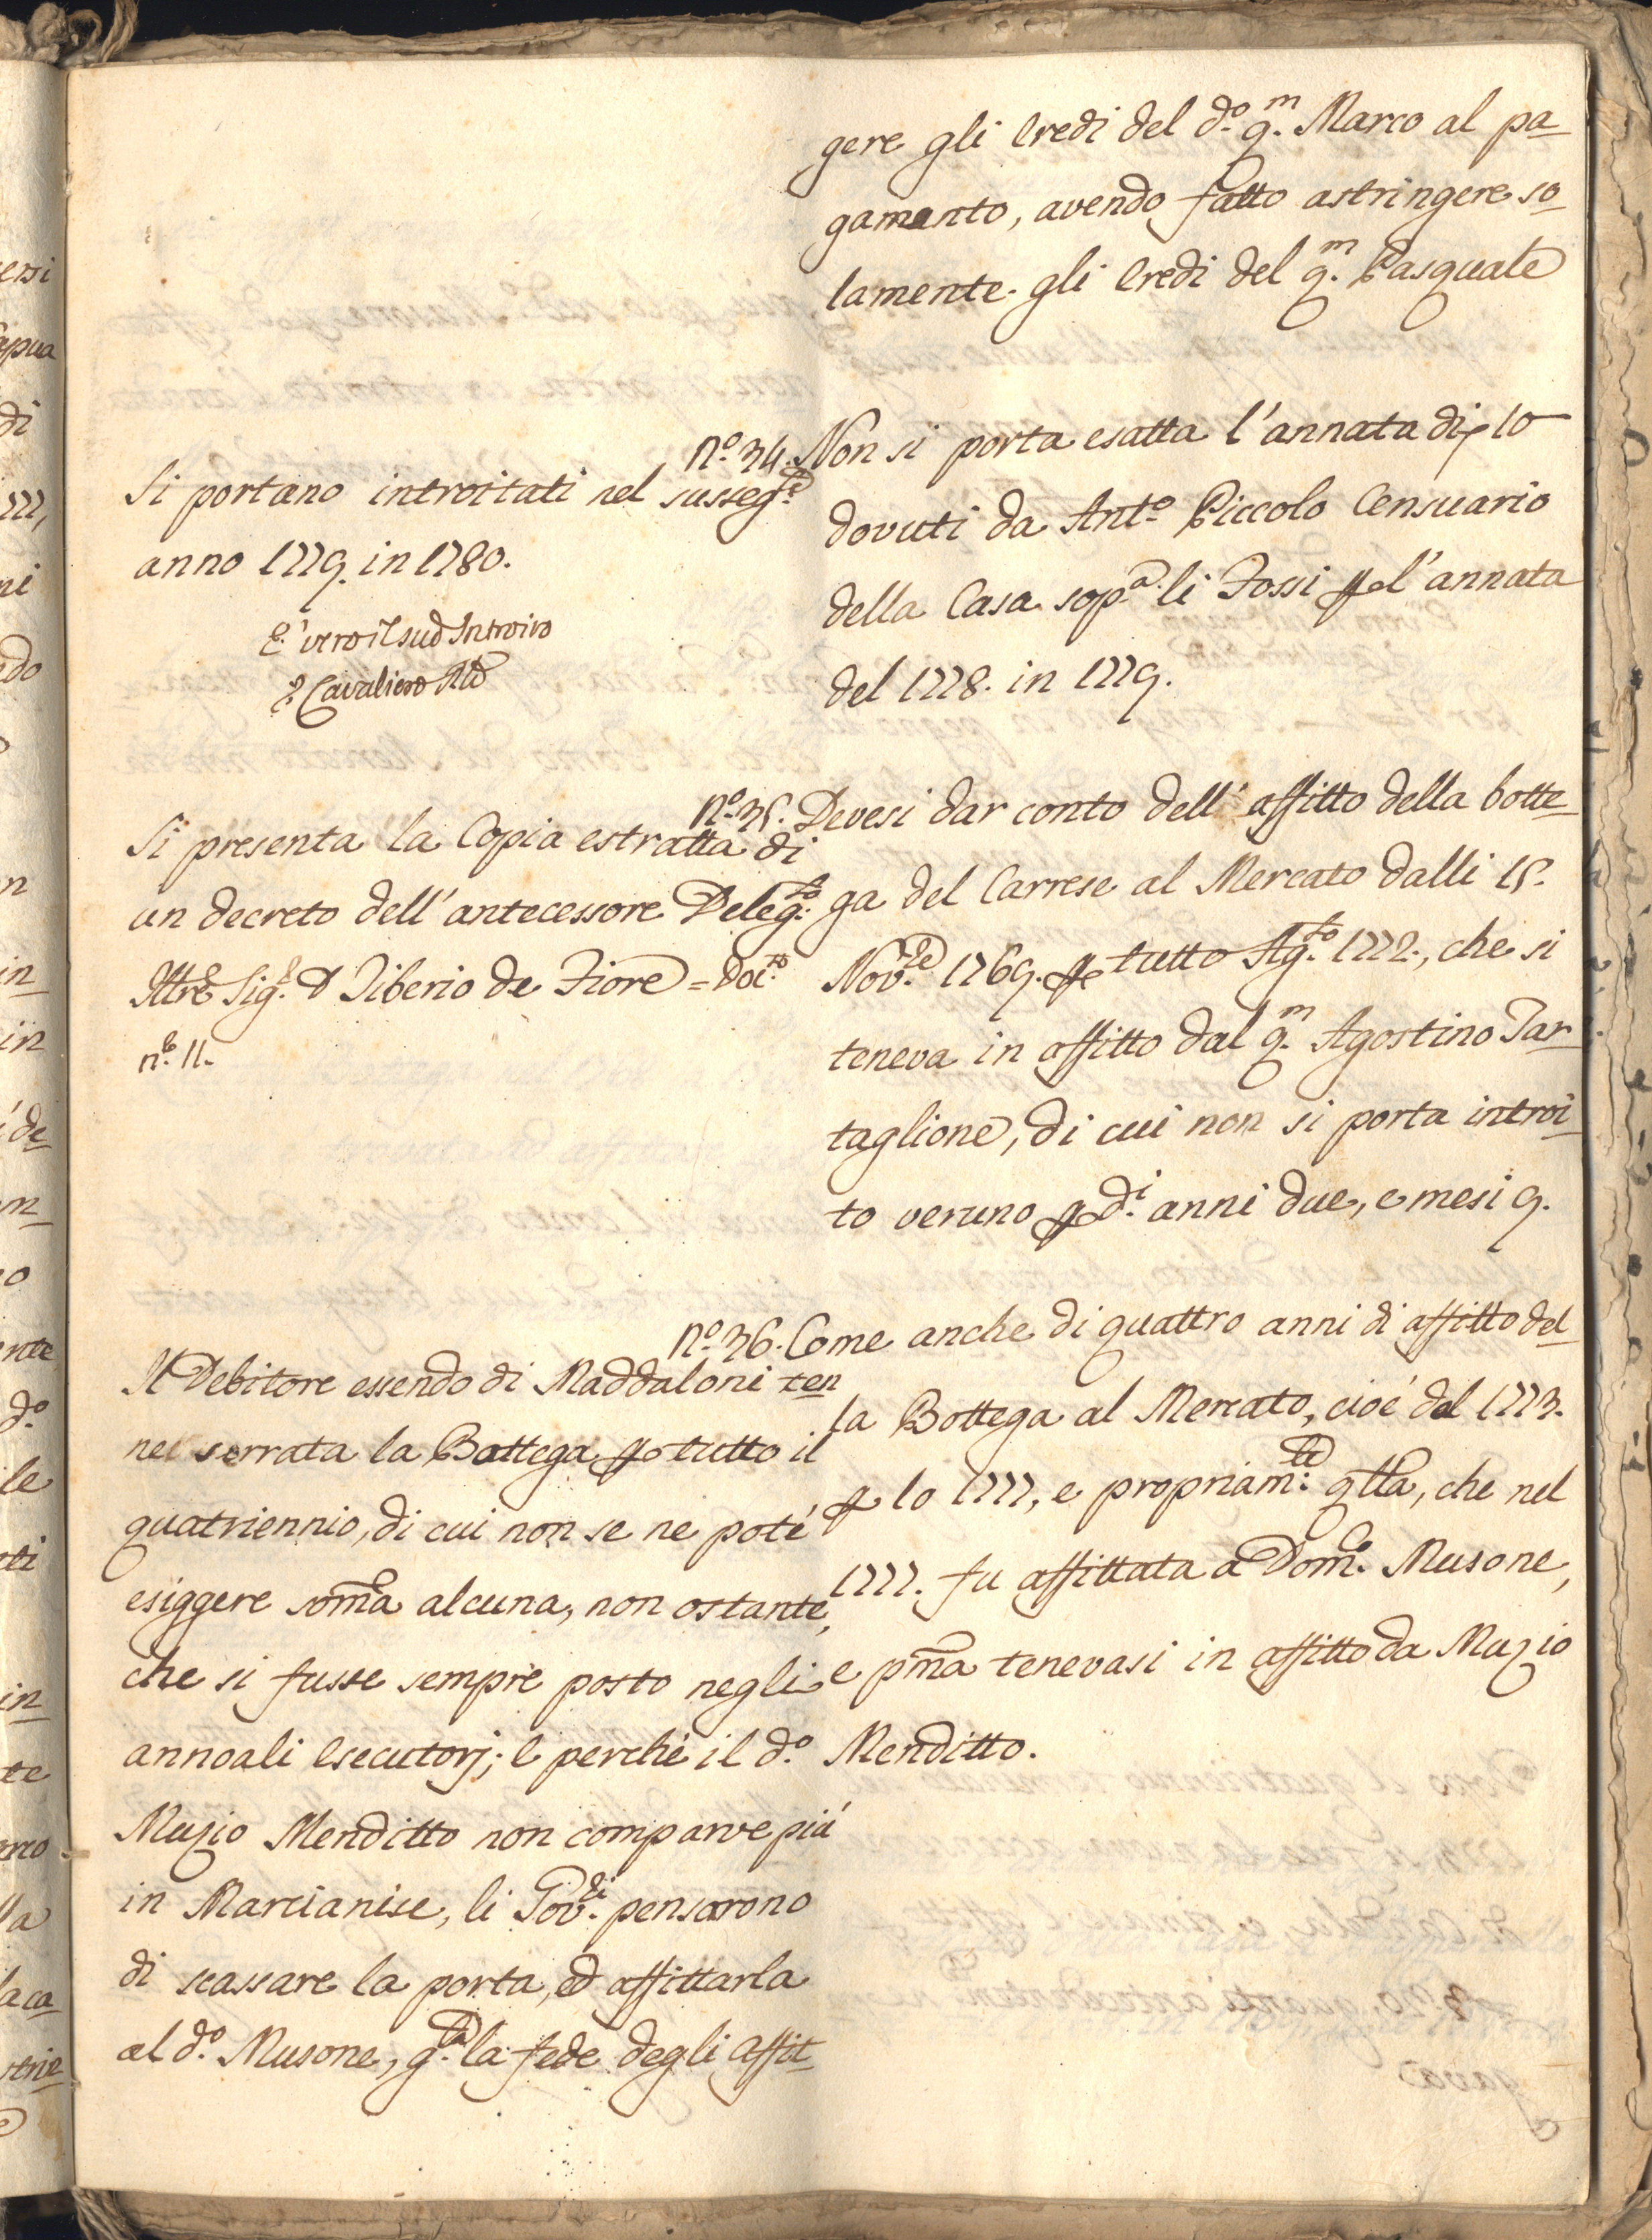 gere gli Eredi del d.º q.m Marco al pa-
gamento, avendo fatto astringere so-
lamente gli Eredi del q.m Pasquale
N.º 34. Non si porta esatta l'annata di 10
dovuti da Ant.º Piccolo Censuario
della Casa sop.a li Fossi p l'annata
del 1778. in 1779.
Si portano introitati nel susseg.e
anno 1779. in 1780.
E' vero il sud Introito
Cavaliero Raz
N.º 35. Devesi dar conto dell'affitto della botte-
ga del Carrese al Mercato dalli 15.
Nov.e 1769. p tutto Ag.to 1772., che si
teneva in affitto dal q.m Agostino Tar-
taglione, di cui non si porta introi-
to veruno p d.i anni due, e mesi 9.
Si presenta la Copia estratta di
un decreto dell'antecessore Deleg.to
Illre Sig.r D Tiberio de Fiore = Doc.to
n.º 11.
N.º 36. Come anche di quattro anni di affitto del-
la Bottega al Mercato, cioé dal 1773.
p lo 1777, e propriam.te qlla, che nel
1777. fu affittata a Dom.co Musone,
e pma tenevasi in affitto da Muzio
Menditto.
Il Debitore essendo di Maddaloni ten-
ne serrata la Bottega p tutto il
quatriennio, di cui non se ne poté
esiggere soma alcuna, non ostante,
che si fusse sempre posto negli
annoali Esecutorj; E perché il d.º
Muzio Menditto non comparve piú
in Marcianise, li Gov.ri pensarono
di scassare la porta, ed affittarla
al d.º Musone, g.ta la fede degli affit-